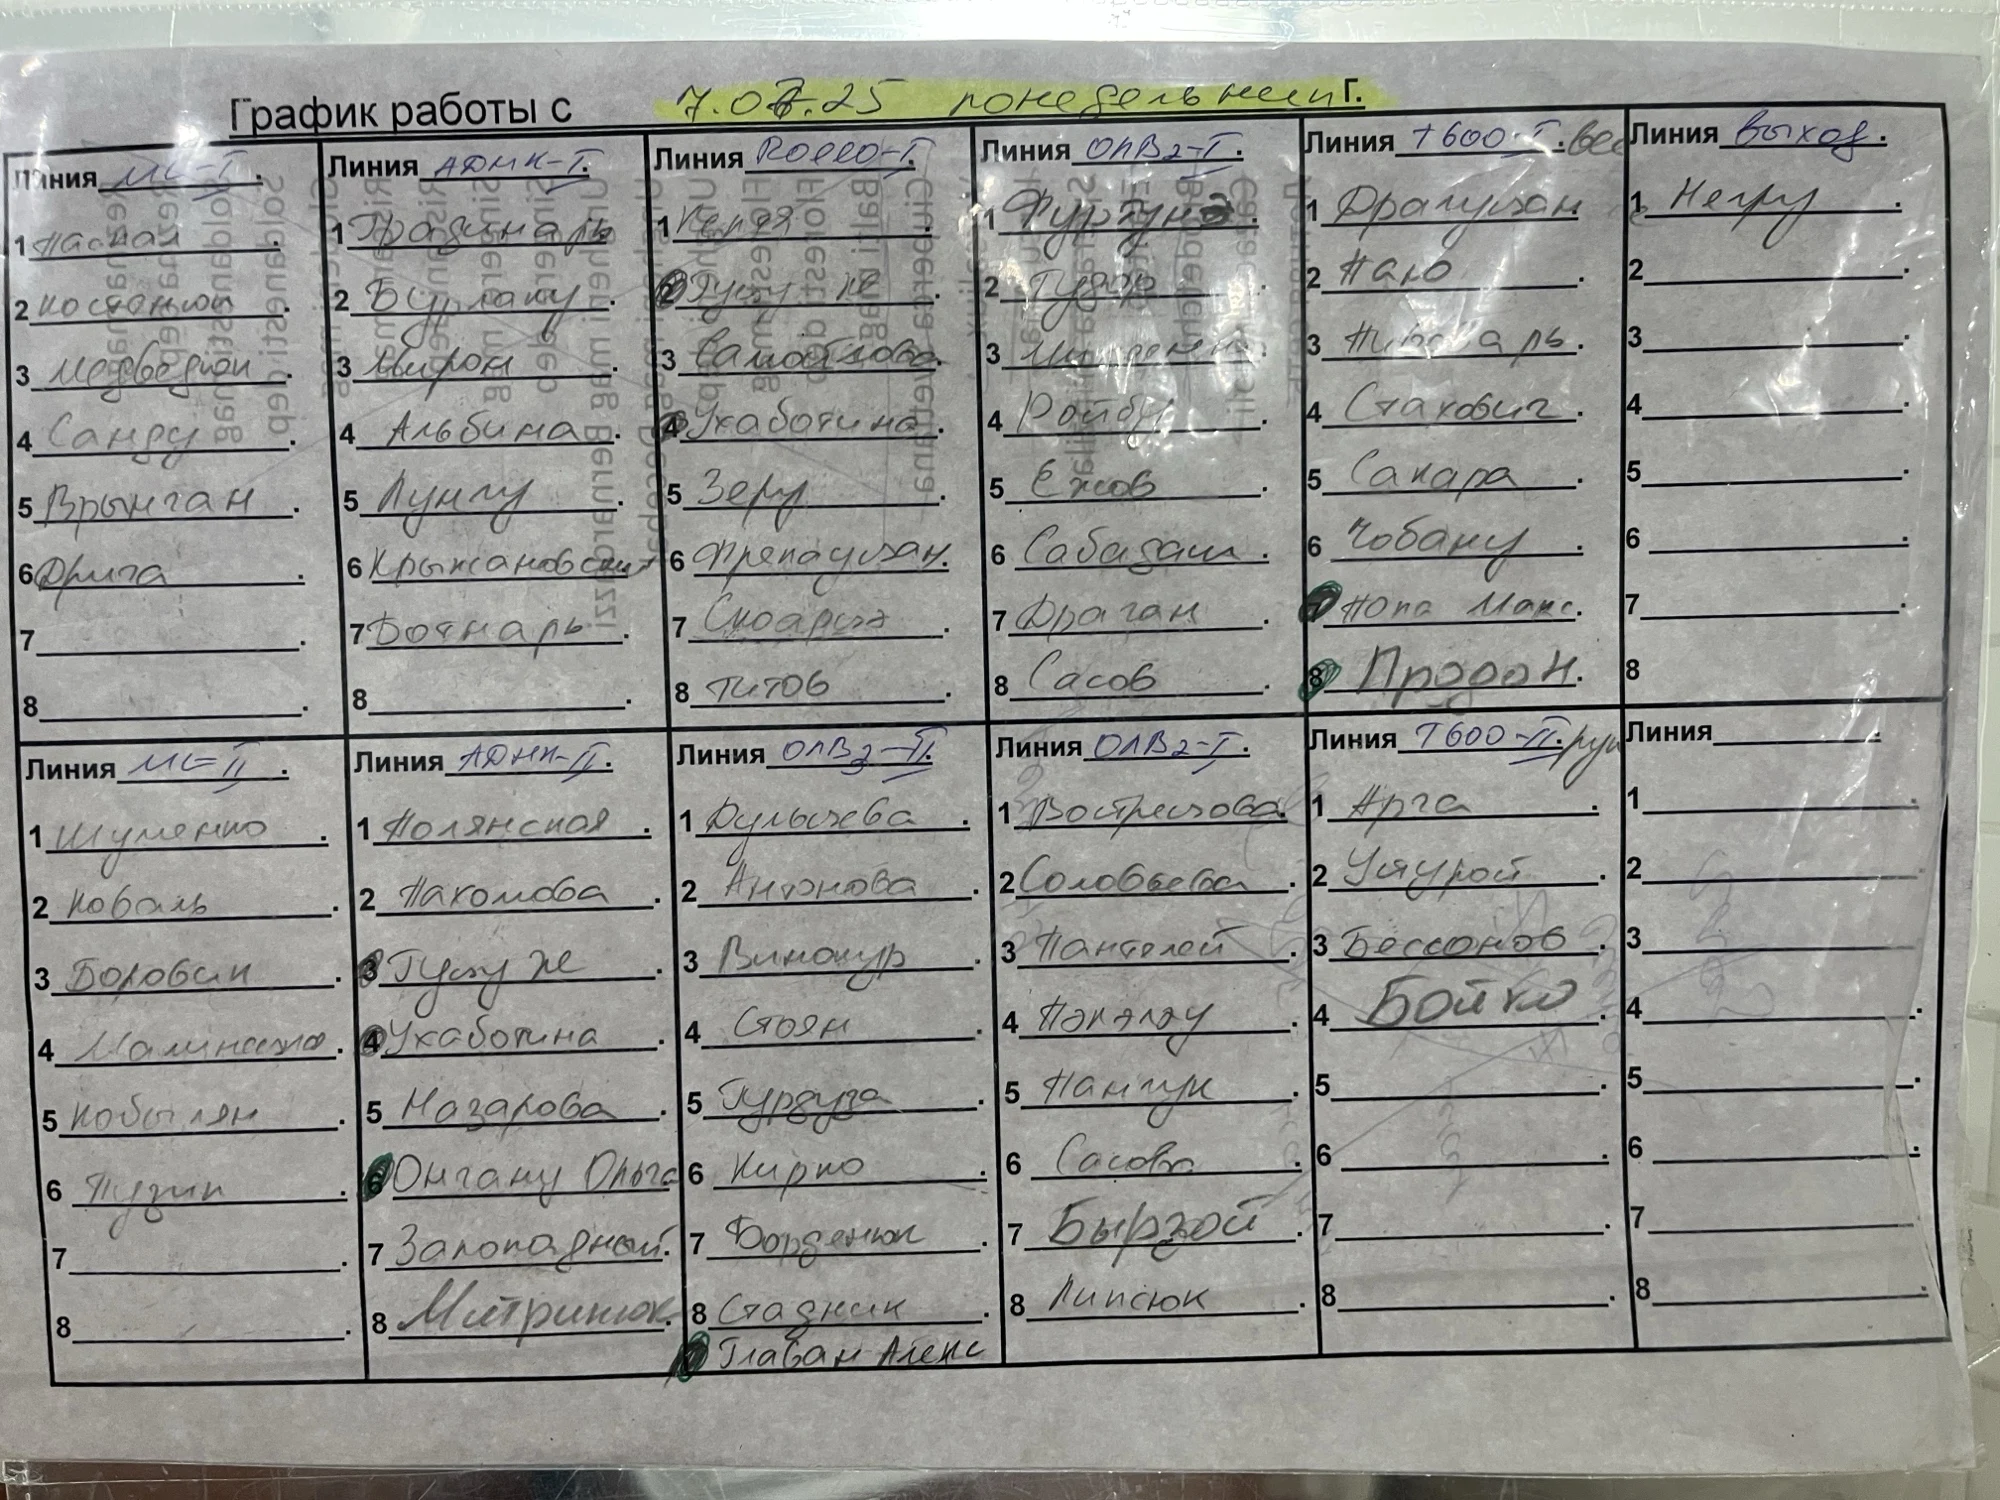 График работы с 7.07.25 понедельник г.
Линия МС-I.
1 Паскал.
2 Костенюк.
3 Медведюк.
4 Санду.
5 Врынган.
6 Дрига.
7
8
Линия АДНК-I.
1 Градинарь
2 Бурлаку.
3 Мирон.
4 Альбина.
5 Лунгу.
6 Крыжановский
7 Ботнарь.
8
Линия ROLLO-I.
1 Кепя.
2 Гуцу Же
3 Самойлова.
4 Ухаботина.
5 Зеру.
6 Трепаушан.
7 Скоарцэ.
8 Титов.
Линия ОЛВ2-I.
1 Фуртунэ.
2 Тудор.
3
4 Ройбу.
5 Ежов.
6 Сабадаш.
7 Драган.
8 Сасов.
Линия Т600-I. вес
1 Драгуцан
2 Паю.
3 Пивоварь.
4 Стахович.
5 Сакара.
6 Чобану.
7 Попа Макс.
8 Продан.
Линия Выход.
1 Негру.
2
3
4
5
6
7
8
Линия МС-II.
1 Шуменко.
2 Коваль.
3 Боровик.
4
5 Кобылян.
6 Пузик.
7
8
Линия АДНК-II.
1 Полянская.
2 Пахомова.
3 Гуцу Же.
4 Ухаботина.
5 Назарова.
6 Онгану Ольга
7 Залопадный.
8 Митринюк.
Линия ОЛВ3-II.
1 Булычева.
2 Антонова.
3 Винокур.
4 Стоян.
5 Гурдуза.
6 Кирко.
7 Борденюк.
8 Стадник.
Главан Алекс
Линия ОЛВ2-I.
1 Вострецова.
2 Соловьева.
3 Пантелей.
4 Пэпэлэу.
5 Панчук.
6 Сасова.
7 Бырзой.
8 Липсюк.
Линия Т600-II. рун
1 Арга.
2 Уцурой.
3 Бессонов.
4 Бойко.
5
6
7
8
Линия
1
2
3
4
5
6
7
8